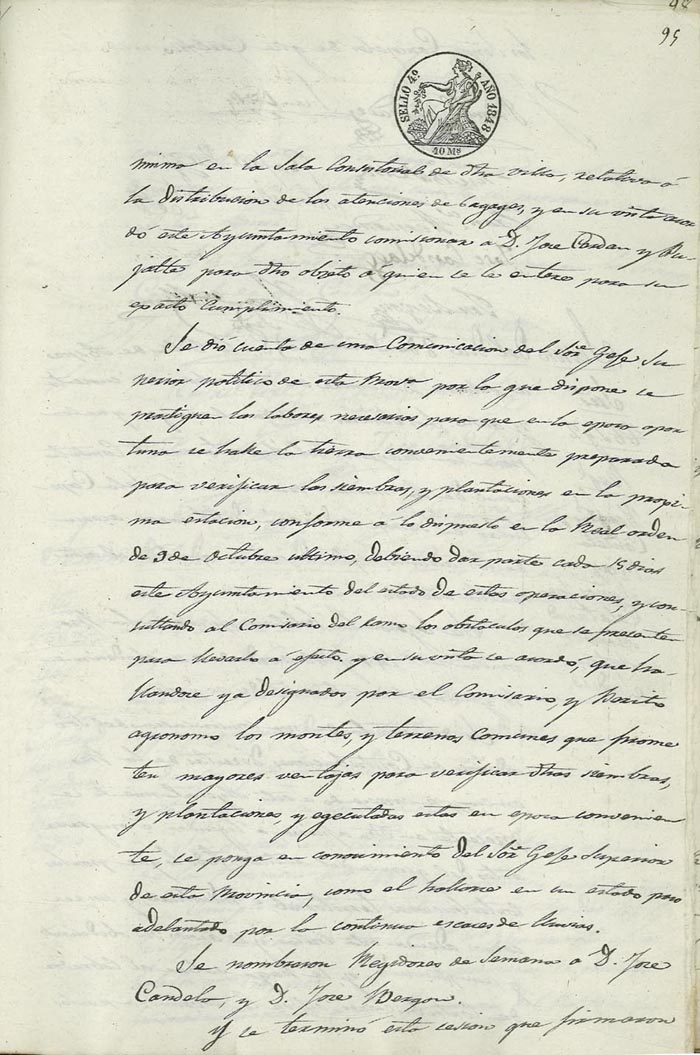 95
SELLO 4º AÑO 1848
40 Ms
misma en la Sala Consistorial de dha villa, relativa á
la distribucion de las atenciones de bagages, y en su vista acor
dó este Ayuntamiento comisionar a D. Jose
para dho objeto a quien se le entere para su
exacto cumplimiento.
Se dió cuenta de una Comunicacion del Sor Gefe Su
perior politico de esta Prova por la que dispone se
practiquen las labores necesarias para que en la epoca opor
tuna se halle la tierra convenientemente preparada
para verificar las siembras, y plantaciones en la procsi
ma estacion, conforme a lo dispuesto en la Real orden
de 9 de Octubre ultimo, debiendo dar parte cada 15 dias
este Ayuntamiento del estado de estas operaciones, y con
sultando al Comisario del ramo los obstaculos que se presenten
para llevarlo á efecto, y en su vista se acordó, que ha
llandose ya designados por el Comisario, y Perito
agronomo los montes, y terrenos Comunes que prome
ten mayores ventajas para verificar dhas siembras,
y plantaciones, y egecutadas estas en epoca convenien
te, se ponga en conocimiento del Sor Gefe Superior
de esta Provincia, como el hallarse en un estado poco
adelantado por la continua escases de lluvias.
Se nombraron Regidores de Semana a D. Jose
Candela, y D. Jose
Y se terminó esta cesion que firmaron